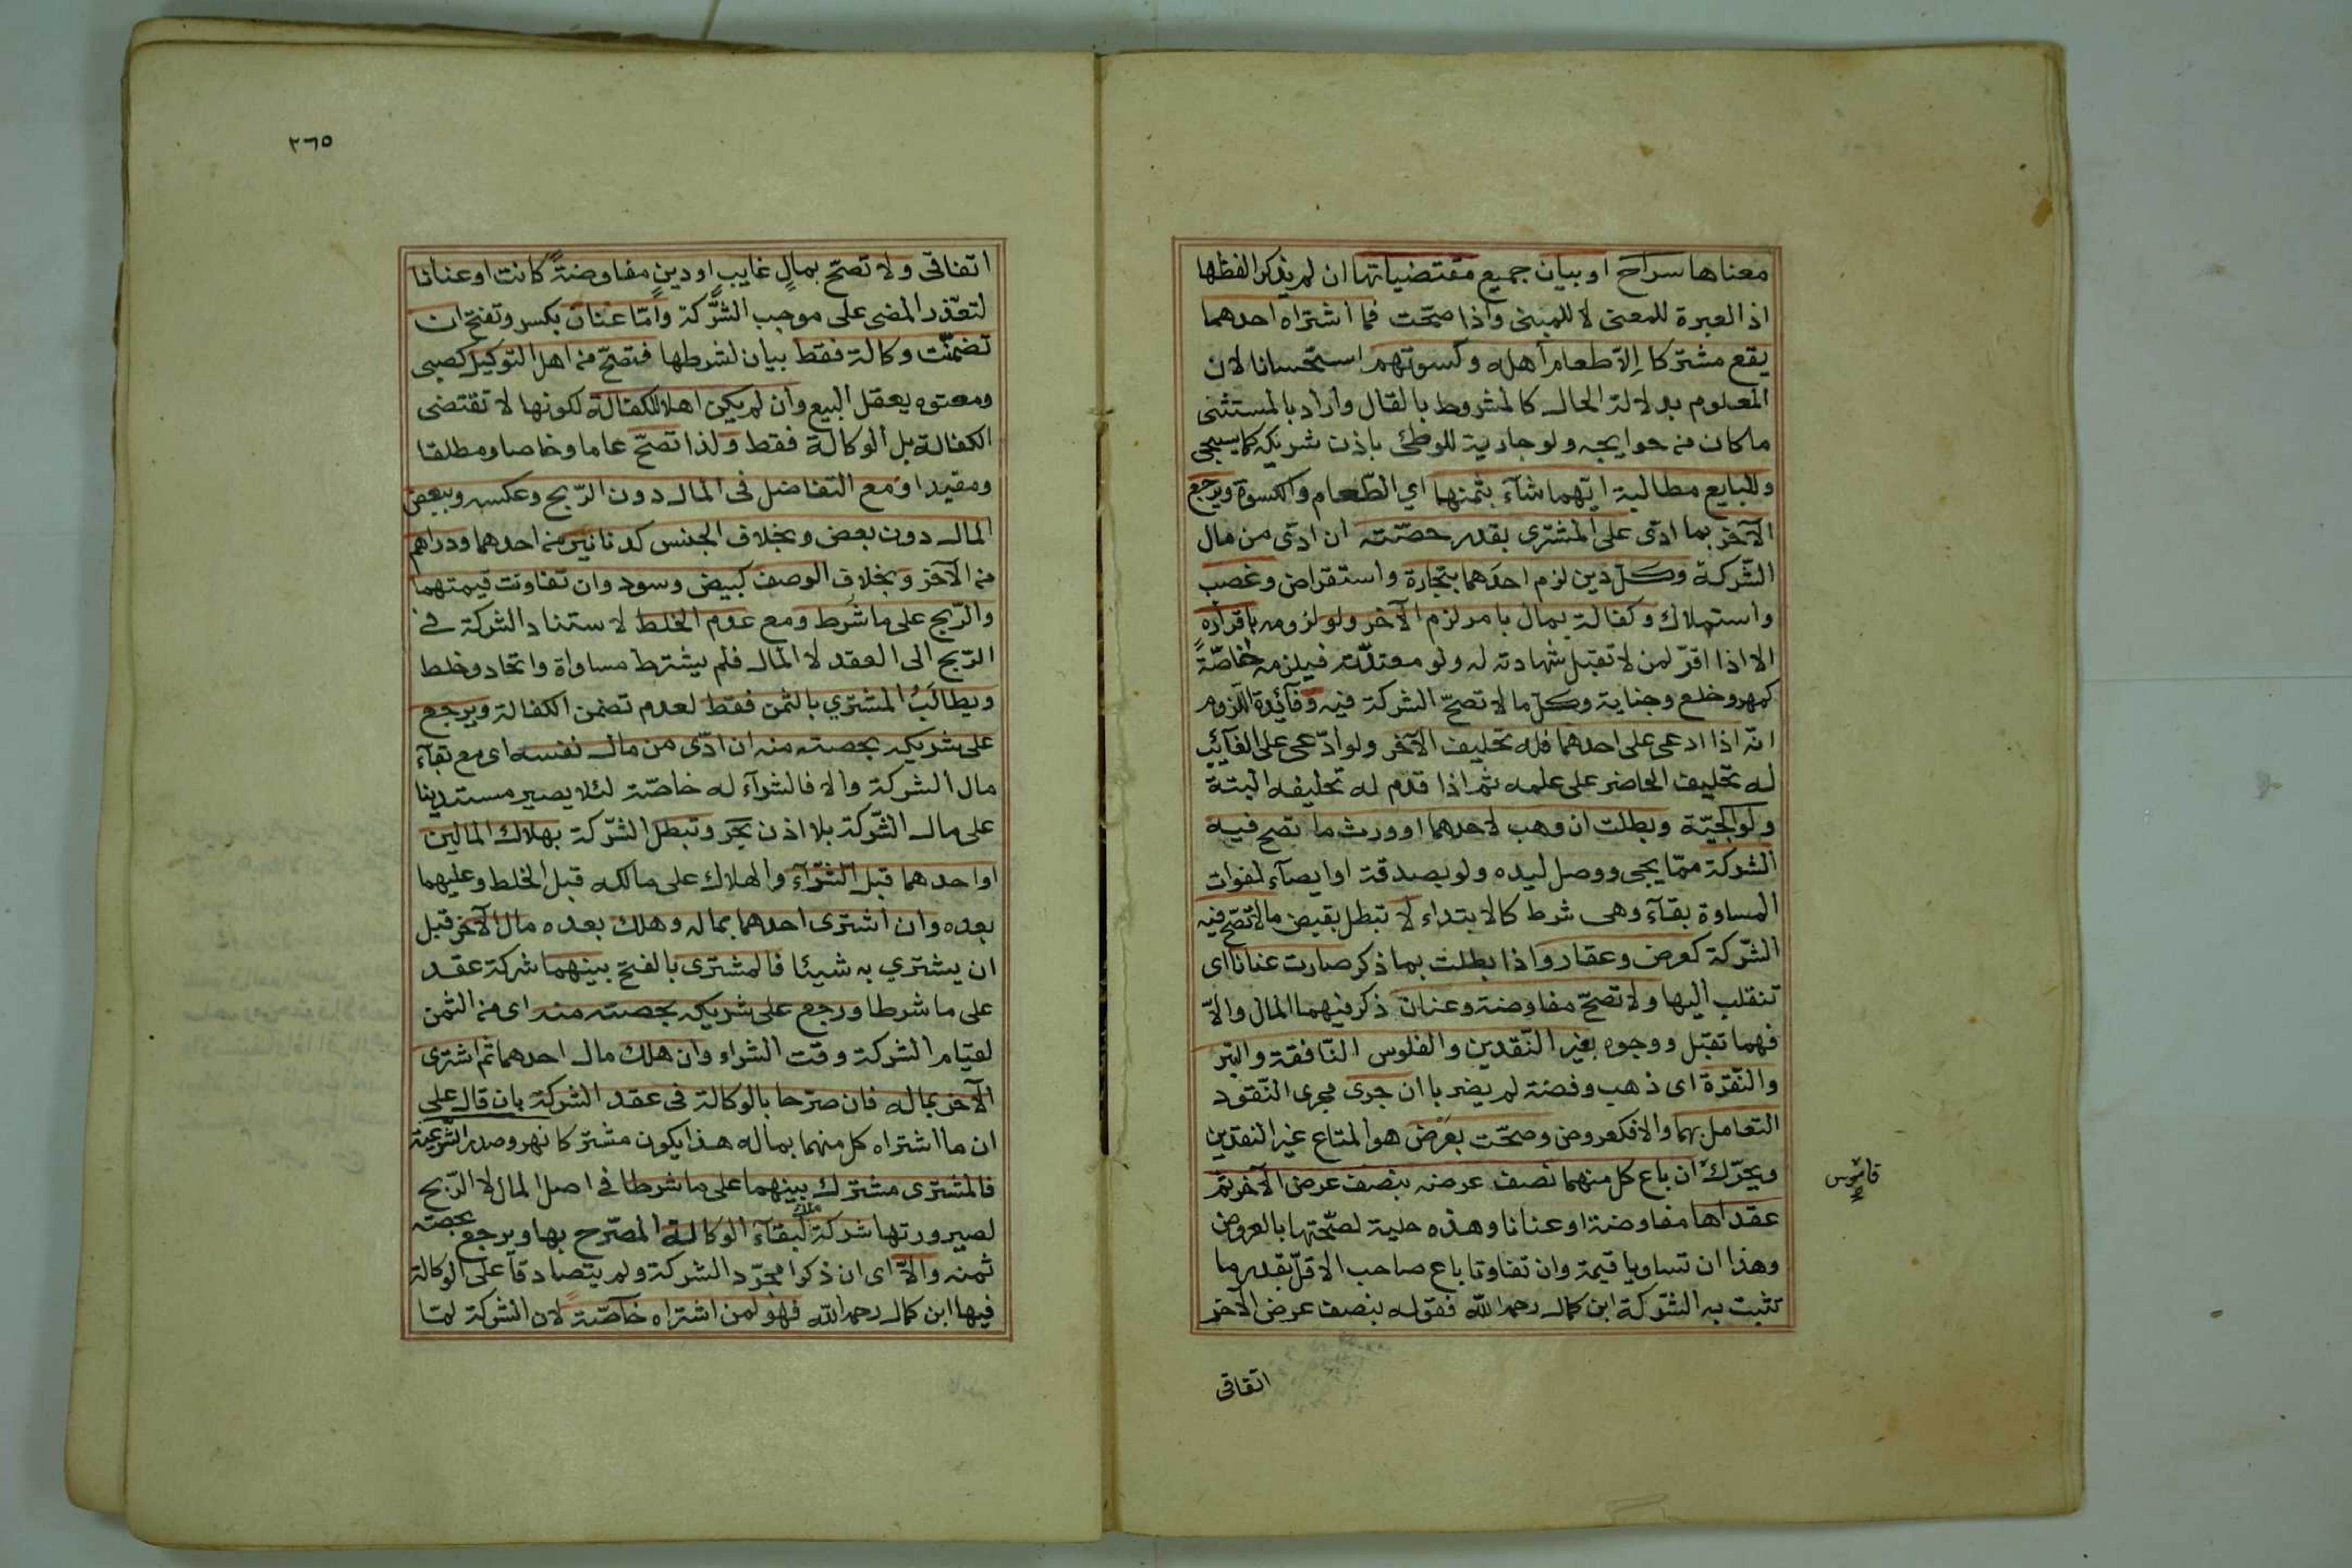 معناها سراج او بيان جميع مقتضياتها ان لم يذكر الفظها
اذ العبرة للمعنى لا للمبنى واذا صحّت فما اشتراه احدهما
يقع مشتركا إلّا طعام أهله وكسوتهم استحسانا لان
المعلوم بدلالة الحال كالمشروط بالقال وأراد بالمستثنى
ماكان من حوايجه ولو جارية للوطئ باذن شريكه كما سيجي
وللبايع مطالبة ايّهما شآء بثمنهما اي الطّعام والكسوة ويرجع
الآخر بما ادّى على المشترى بقدر حصّته ان ادّى من مال
الشّركة وكلّ دين لزم احدهما بتجارة واستقراض وغصب
واستهلاك وكفالة بمال بامر لزم الآخر ولو لزومه باقراره
الا اذا اقرّ لمن لا تقبل شهادته له ولو معتدّته فيلزمه خاصّةً
كمهر وخلع وجناية وكلّ ما لا تصحّ الشركة فيه وفآئدة اللزوم
انّه اذا ادعى على احدهما فله تحليف الآخر ولو ادّعى على الغآئب
له تحليف الحاضر على علمه ثم اذا قدم له تحليفه البتة
ولوالجيّة وبطلت ان وهب لاحدهما او ورث ما تصح فيه
الشركة ممّا يجى ووصل ليده ولو بصدقة او ايصآء لفوات
المساوة بقآء وهى شرط كالابتداء لا تبطل بقبض مالا تصّح فيه
الشّركة كعرض وعقار واذا بطلت بما ذكر صارت عنانا اى
تنقلب اليها ولا تصحّ مفاوضة وعنان ذكر فيهما المال والّا
فهما تقبّل ووجوه بغير النّقدين والفلوس النّافقة والتّبر
والنّقرة اى ذهب وفضّة لم يضربا ان جرى مجرى النّقود
التعامل بهما والا فكعروض وصحّت بعَرْض هو المتاع غير النقدين
ويحرّك ان باع كل منهما نصف عرضه بنصف عرض الآخر ثم
عقداها مفاوضة او عنانا وهذه حلية لصحّتها بالعروض
وهذا ان تساويا قيمة وان تفاوتا باع صاحب الاقلّ بقدر ما
تثبت به الشّركة ابن كمال رحمه الله فقوله بنصف عرض الآخر
قاموس
اتفاقى
٣٦٥
اتفاقى ولا تصحّ بمالٍ غايبٍ او دينٍ مفاوضةً كانت او عنانا
لتعذّر المضى على موجب الشّركة وامّا عنان بكسر وتفتح ان
تضمنّت وكالة فقط بيان لشرطها فتصحّ من اهل التوكيل كصبى
ومعتوه يعقل البيع وان لم يكن اهلا للكفالة لكونها لا تقتضى
الكفالة بل الوكالة فقط ولذا تصحّ عاما وخاصا ومطلقا
ومقيدا ومع التفاضل فى المال دون الرّبح وعكسه وببعض
المال دون بعض وبخلاف الجنس كدنانير من احدهما ودراهم
من الآخر وبخلاف الوصف كبيض وسود وان تفاوتت قيمتهما
والرّبح على ما شرط ومع عدم الخلط لاستناد الشركة فى
الرّبح الى العقد لا المال فلم يشترط مساواة واتحاد وخلط
ويطالَبُ المشتري بالثمن فقط لعدم تضمن الكفالة ويرجع
على شريكه بحصته منه ان ادّى من مال نفسه اى مع بقآء
مال الشركة والا فالشرآء له خاصّة لئلا يصير مستدينا
على مال الشّركة بلا اذن بحر وتبطل الشّركة بهلاك المالين
او احدهما قبل الشّرآء والهلاك على مالكه قبل الخلط وعليهما
بعده وان اشترى احدهما بماله وهلك بعده مال الآخر قبل
ان يشتري به شيئا فالمشترى بالفتح بينهما شركة عقد
على ما شرطا ورجع على شريكه بحصته منه اى من الثمن
لقيام الشركة وقت الشراء وان هلك مال احدهما ثم اشترى
الآخر بماله فان صرّحا بالوكالة فى عقد الشركة بان قال على
ان ما اشتراه كل منهما بماله هذا يكون مشتركا نهر وصدر الشّريعة
فالمشترى مشترك بينهما على ما شرطا فى اصل المال لا الرّبح
لصيرورتها شركة ملك لبقآء الوكالة المصّرح بها ويرجع بحصته
ثمنه والاّ اى ان ذكرا مجرّد الشركة ولم يتصادقا على الوكالة
فيها ابن كمال رحمه الله فهو لمن اشتراه خآصّة لان الشركة لمّا